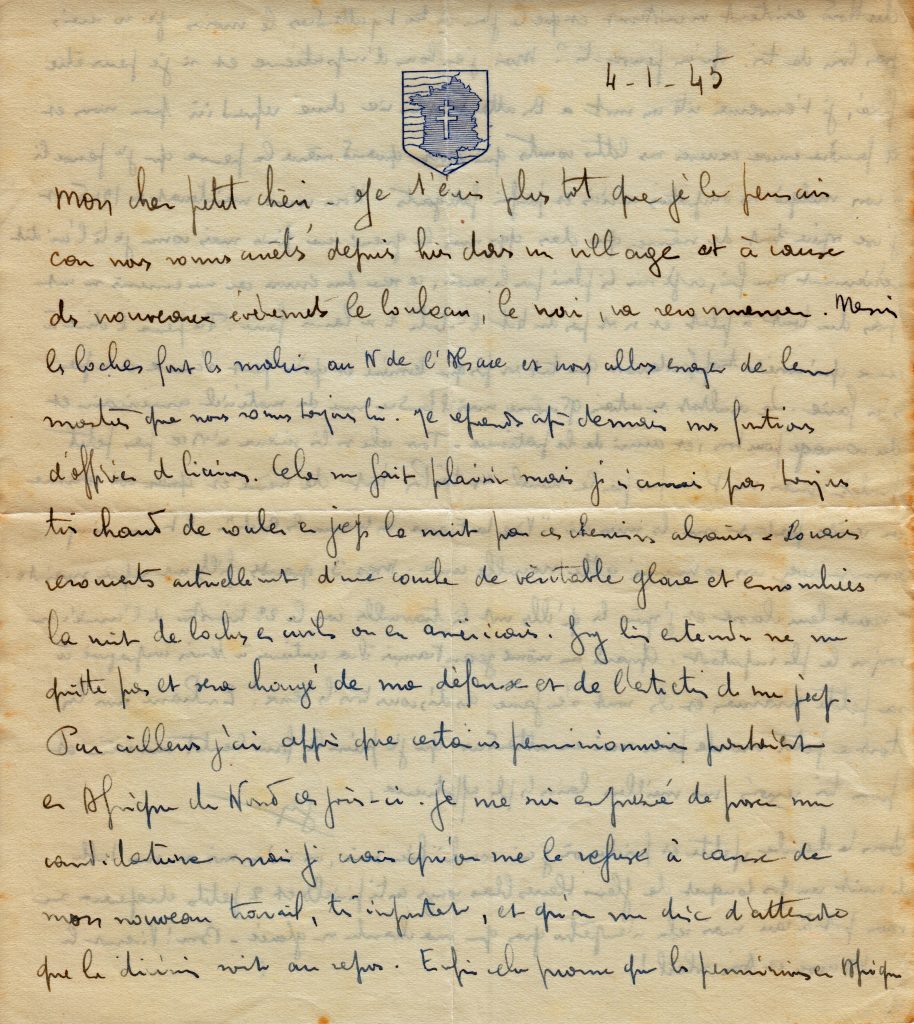 4-1-45
Mon cher petit chéri. Je t'écris plus tôt que je le pensais
car nous sommes arrêtés depuis hier dans un village et à cause
des nouveaux évènements le boulot, le vrai, va recommencer.
les boches font les malins au N de l'Alsace et nous allons essayer de leur
montrer que nous sommes toujours là. Je reprends après demain mes fonctions
d'officier de liaison. Cela me fait plaisir mais je n'aurai pas toujours
très chaud de rouler en jeep la nuit par ces chemins alsaciens -
recouverts actuellement d'une couche de véritable glace et encombrés
la nuit de boches en civils ou en américains. bien entendu ne me
quitte pas et sera chargé de ma défense et de l'entretien de ma jeep.
Par ailleurs j'ai appris que certains permissionnaires partaient
en Afrique du Nord ces jours-ci. Je me suis empressé de poser ma
candidature mais je crains qu'on me la refuse à cause de
mon nouveau travail, très important, et qu'on me dise d'attendre
que la division soit au repos. Enfin cela prouve que les permissions en Afrique